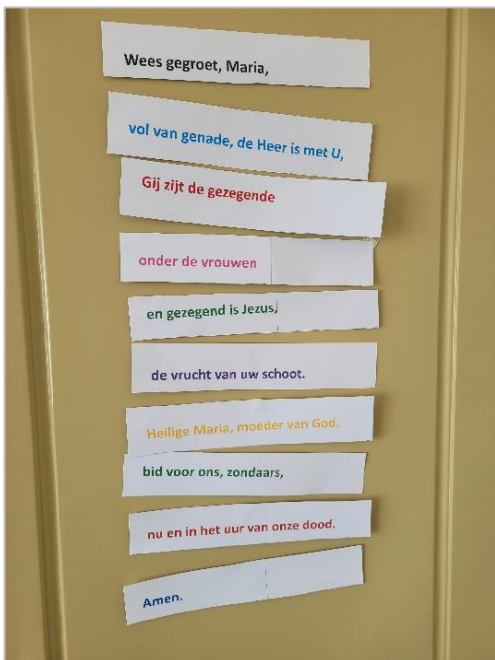 Wees gegroet, Maria,
vol van genade, de Heer is met U,
Gij zijt de gezegende
onder de vrouwen
en gezegend is Jezus,
de vrucht van uw schoot.
Heilige Maria, moeder van God,
bid voor ons, zondaars,
nu en in het uur van onze dood.
Amen.